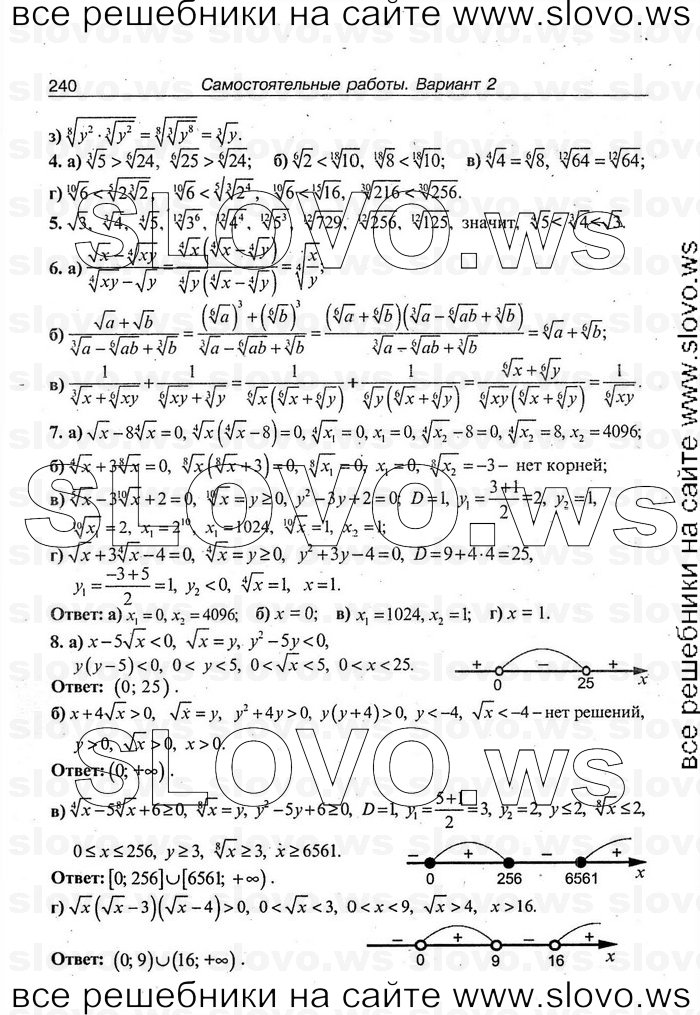 все решебники на сайте www.slovo.ws
240 Самостоятельные работы. Вариант 2
з) ⁸√(y²·³√(y²)) = ⁸√(³√(y⁸)) = ³√y.
4. а) ³√5 > ⁶√24, ⁶√25 > ⁶√24; б) ⁶√2 < ¹⁸√10, ¹⁸√8 < ¹⁸√10; в) ⁴√4 = ⁶√8, ¹²√64 = ¹²√64;
г) ¹⁰√6 < ⁵√(2³√2), ¹⁰√6 < ⁵√(³√(2⁴)), ¹⁰√6 < ¹⁵√16, ³⁰√216 < ³⁰√256.
5. √3, ³√4, ⁴√5, ¹²√(3⁶), ¹²√(4⁴), ¹²√(5³), ¹²√729, ¹²√256, ¹²√125, значит, ⁴√5 < ³√4 < √3.
6. а) (√x − ⁴√(xy))/(⁴√(xy) − √y) = (⁴√x(⁴√x − ⁴√y))/(⁴√y(⁴√x − ⁴√y)) = ⁴√(x/y);
б) (√a + √b)/(³√a − ⁶√(ab) + ³√b) = ((⁶√a)³ + (⁶√b)³)/(³√a − ⁶√(ab) + ³√b) = ((⁶√a + ⁶√b)(³√a − ⁶√(ab) + ³√b))/(³√a − ⁶√(ab) + ³√b) = ⁶√a + ⁶√b;
в) 1/(³√x + ⁶√(xy)) + 1/(⁶√(xy) + ³√y) = 1/(⁶√x(⁶√x + ⁶√y)) + 1/(⁶√y(⁶√x + ⁶√y)) = (⁶√x + ⁶√y)/(⁶√(xy)(⁶√x + ⁶√y)) = 1/⁶√(xy).
7. а) √x − 8⁴√x = 0, ⁴√x(⁴√x − 8) = 0, ⁴√x₁ = 0, x₁ = 0, ⁴√x₂ − 8 = 0, ⁴√x₂ = 8, x₂ = 4096;
б) ⁴√x + 3⁸√x = 0, ⁸√x(⁸√x + 3) = 0, ⁸√x₁ = 0, x₁ = 0, ⁸√x₂ = −3 – нет корней;
в) ⁵√x − 3¹⁰√x + 2 = 0, ¹⁰√x = y ≥ 0, y² − 3y + 2 = 0; D = 1, y₁ = (3+1)/2 = 2, y₂ = 1,
¹⁰√x₁ = 2, x₁ = 2¹⁰ x₁ = 1024, ¹⁰√x = 1, x₂ = 1;
г) √x + 3⁴√x − 4 = 0, ⁴√x = y ≥ 0, y² + 3y − 4 = 0, D = 9 + 4·4 = 25,
y₁ = (−3+5)/2 = 1, y₂ < 0, ⁴√x = 1, x = 1.
Ответ: а) x₁ = 0, x₂ = 4096; б) x = 0; в) x₁ = 1024, x₂ = 1; г) x = 1.
8. а) x − 5√x < 0, √x = y, y² − 5y < 0,
y(y − 5) < 0, 0 < y < 5, 0 < √x < 5, 0 < x < 25.
+ − +
0 25 x
Ответ: (0; 25).
б) x + 4√x > 0, √x = y, y² + 4y > 0, y(y + 4) > 0, y < −4, √x < −4 – нет решений,
y > 0, √x > 0, x > 0.
Ответ: (0; +∞).
в) ⁴√x − 5⁸√x + 6 ≥ 0, ⁸√x = y, y² − 5y + 6 ≥ 0, D = 1, y₁ = (5+1)/2 = 3, y₂ = 2, y ≤ 2, ⁸√x ≤ 2,
0 ≤ x ≤ 256, y ≥ 3, ⁸√x ≥ 3, x ≥ 6561.
− + − +
0 256 6561 x
Ответ: [0; 256]∪[6561; +∞).
г) √x(√x − 3)(√x − 4) > 0, 0 < √x < 3, 0 < x < 9, √x > 4, x > 16.
− + − +
0 9 16 x
Ответ: (0; 9)∪(16; +∞).
SLOVO.ws
SLOVO.ws
SLOVO.ws
все решебники на сайте www.slovo.ws
все решебники на сайте www.slovo.ws